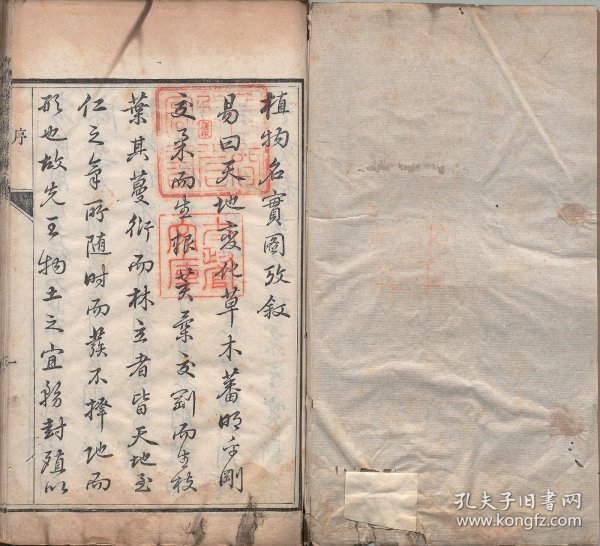 植物名實圖攷敘
易曰天地變化草木蕃明乎剛
交柔而生根荄柔交剛而生枝
葉其蔓衍而林立者皆天地至
仁之氣所隨時而發不擇地而
形也故先王物土之宜務封殖以
序
一
孔夫子旧书网
www.kongfz.com